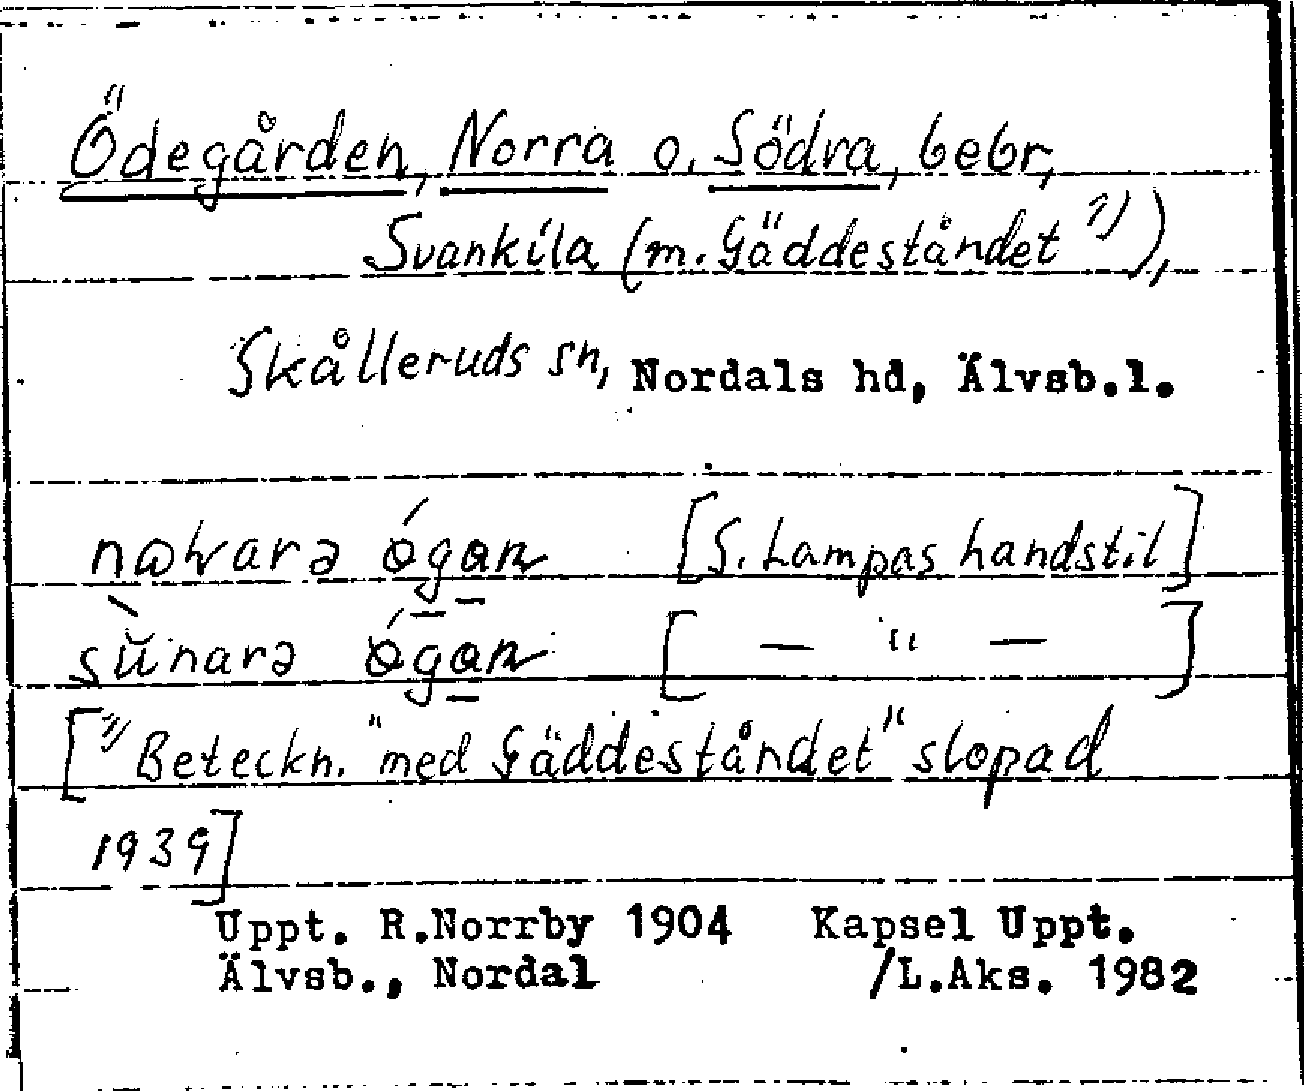 Ödegården, Norra o. Södra, bebr,
Svankila (m. Gäddeståndet 1)),
Skålleruds sn, Nordals hd, Älvsb.l.
[S. Lampas handstil]
[ — " — ]
[1) Beteckn. "med Gäddeståndet" slopad
1939]
Uppt. R.Norrby 1904 Kapsel Uppt.
Älvsb., Nordal /L.Aks. 1982